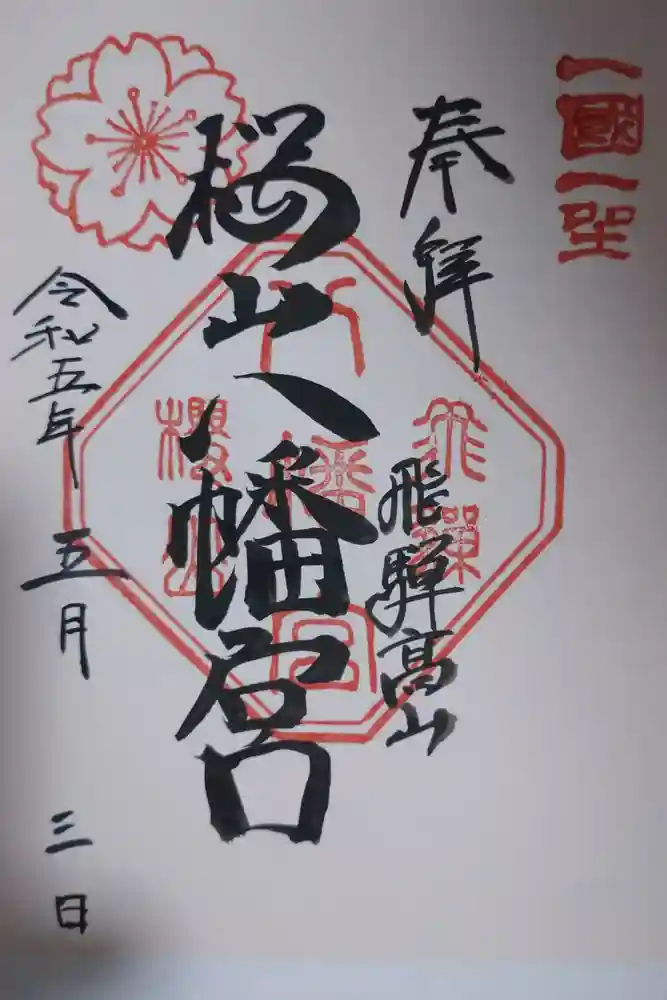 一國一
奉拝
飛驒高山
桜山八幡宮
令和五年 五月 三日
飛驒
八幡宮
櫻山